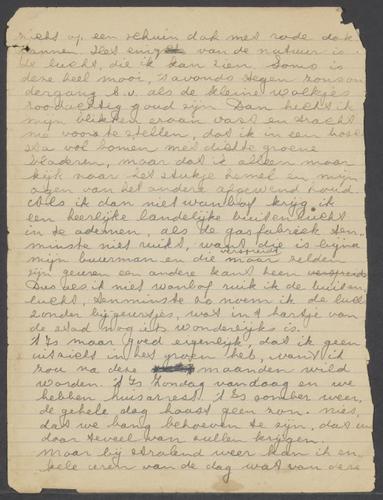 zicht op een schuin dak met rode dak
pannen. Het enige van de natuur is
de lucht, die ik kan zien. Soms is
deze heel mooi, 's avonds tegen zonson
dergang b.v. als de kleine wolkjes
roodachtig goud zijn. Dan hecht ik
mijn blikken eraan vast en tracht
me voor te stellen, dat ik in een bos
sta vol bomen met dichte groene
bladeren, maar dat ik alleen maar
kijk naar het stukje hemel en mijn
ogen van het andere afgewend houd.
Als ik dan niet wanbof krijg ik
een heerlijke landelijke buitenlucht
in te ademen, als de gasfabriek ten
minste niet ruikt, want die is bijna
mijn buurman en die maar zelden
verspreidt
zijn geuren een andere kant heen
Dus als ik niet wanbof ruik ik de buiten
lucht, tenminste zo noem ik de lucht
zonder bijgeurtjes, wat in 't hartje van
de stad nog iets wonderlijks is.
't Is maar goed eigenlijk, dat ik geen
uitzicht in het groen heb, want ik
zou na deze maanden wild
worden. 't Is Zondag vandaag en we
hebben huisarrest. 't Is somber weer,
de gehele dag haast geen zon. Niets,
dat we bang behoeven te zijn, dat we
daar teveel van zullen krijgen.
Maar bij stralend weer kan ik en
kele uren van de dag wat van deze